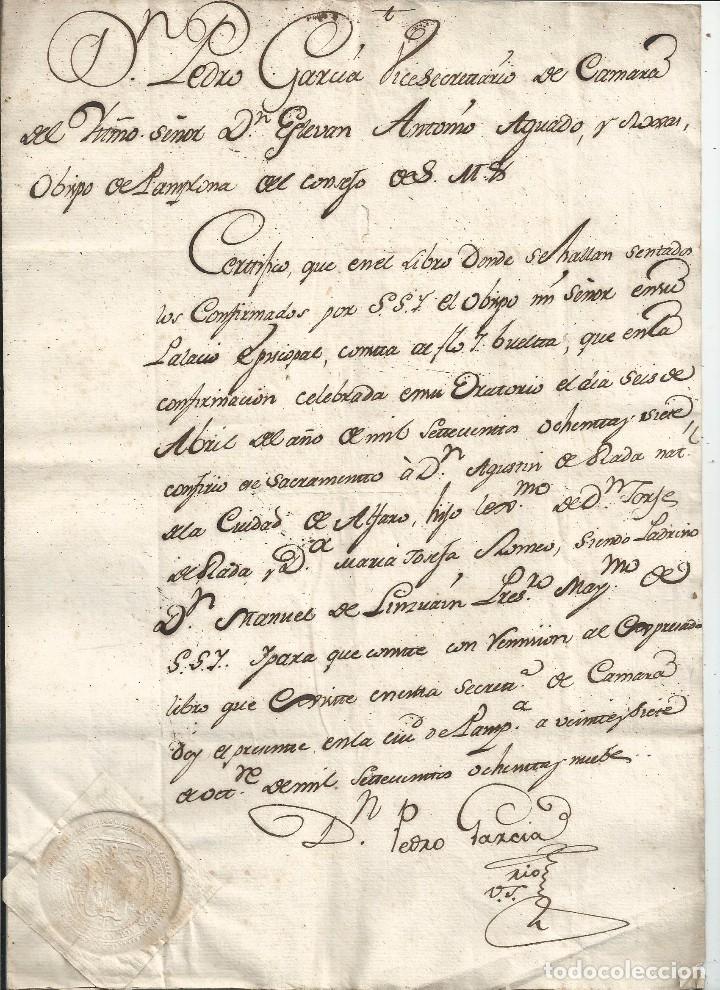 t
Dn. Pedro García Vicesecretario de Camara
del Yttmo. Señor Dn. Estevan Antonio Aguado, y Roxas,
Obispo de Pamplona del consejo de S. M. &
Certifico, que en el Libro donde se hallan sentados
los Confirmados por S.S.I. el Obispo mi Señor en su
Palacio Episcopal, consta al fo. 7. buelta, que en la
confirmación celebrada en su Oratorio el dia seis de
Abril del año de mil settecientos ochenta y siete
confirio este Sacramento à Dn. Agustin de Rada nat.l
de la Ciudad de Alfaro, hijo lexmo. de Dn. Jorje
de Rada y Da. Maria Josefa Romeo, siendo Padrino
Dn. Manuel de Presro. Maymo. de
S.S.I. Y para que conste con remision al expresado
libro que existe en esta Secreta. de Camara
doy el presente en la ciud. de Pampa. a veinte y siete
de octne. de mil settecientos ochenta y nuebe
Dn. Pedro Garcia
rio
V.S.
todocoleccion